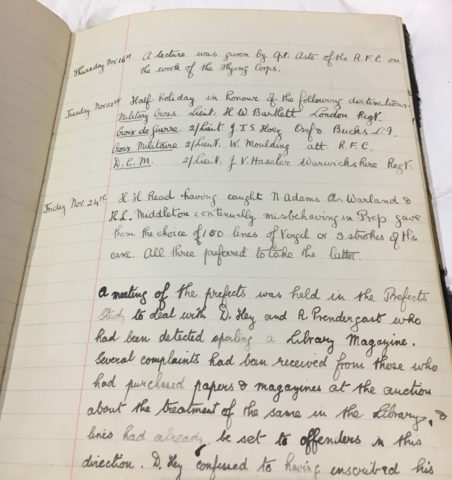 Thursday Nov. 16th A lecture was given by Cpt. Aste of the R.F.C on
the work of the Flying Corps.
Tuesday Nov. 21st Half holiday in honour of the following distinctions.
Military Cross. Lieut. H. W. Bartlett London Regt.
Croix de guerre. 2/Lieut J T S Hoey Oxf & Bucks L.I.
Croix Militaire 2/Lieut. W. Moulding att R.F.C.
D.C.M. 2/Lieut. J V. Haseler Warwickshire Regt.
Friday Nov. 24th H H Read having caught N Adams A. Warland &
H.L. Middleton continually misbehaving in Prep gave
them the choice of 100 lines of Vergil or 3 strokes of the
cane. All three preferred to take the latter.
A meeting of the prefects was held in the Prefects
Study to deal with D. Hey and R Prendergast who
had been detected spoiling a Library Magazine.
Several complaints had been received from those who
had purchased papers & magazines at the auction
about the treatment of the same in the Library, &
lines had already be set to offenders in this
direction. D. Hey confessed to having inscribed his